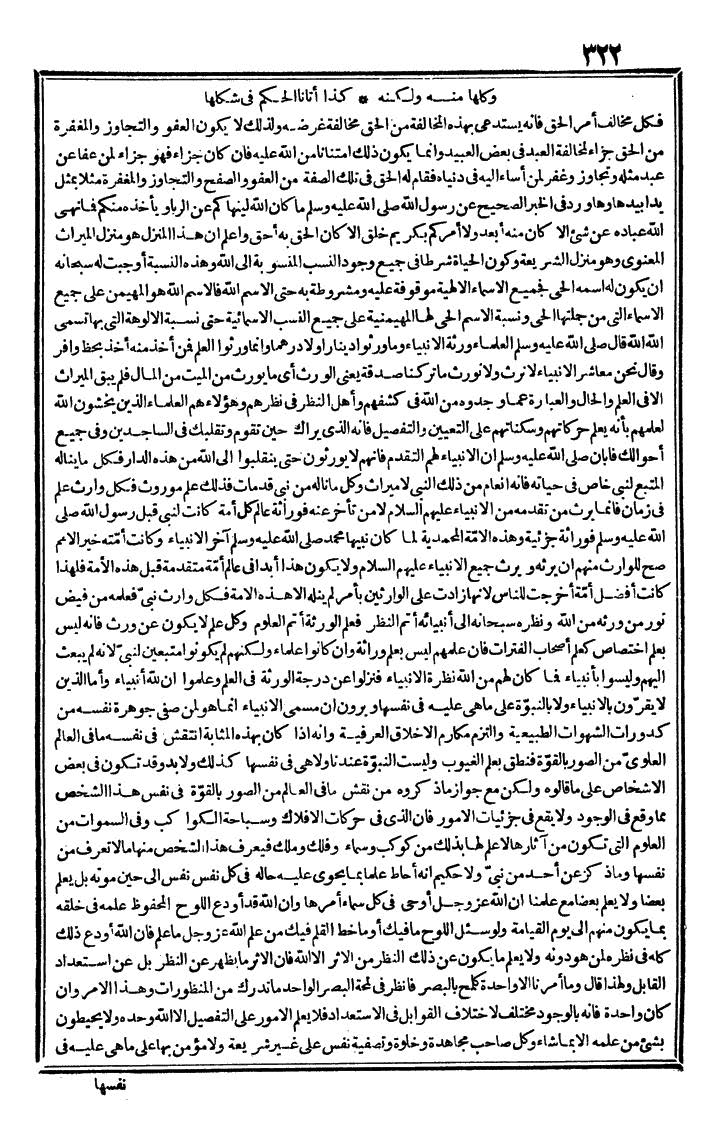 ٣٢٢
وكلها منه ولكنه * كذا أتانا الحكم فى شكلها
فكل مخالف أمر الحق فانه يستدعى بهذه المخالفة من الحق مخالفة غرضه ولذلك لا يكون العفو والتجاوز والمغفرة
من الحق جزاء لمخالفة العبد فى بعض العبيد وانما يكون ذلك امتنانا من الله عليه فان كان جزاء فهو جزاء لمن عفا عن
عبد مثله وتجاوز وغفر لمن أساء اليه فى دنياه فقام له الحق فى تلك الصفة من العفو والصفح والتجاوز والمغفرة مثلا بمثل
يدا بيد ها وها ورد فى الخبر الصحيح عن رسول الله صلى الله عليه وسلم ما كان الله لينهاكم عن الربا ويأخذه منكم فما نهى
الله عباده عن شئ الا كان منه أبعد ولا أمركم بكريم خلق الا كان الحق به أحق واعلم ان هذا المنزل هو منزل الميراث
المعنوى وهو منزل الشريعة وكون الحياة شرطا فى جميع وجود النسب المنسوبة الى الله وهذه النسبة أوجبت له سبحانه
ان يكون له اسمه الحى فجميع الاسماء الالهية موقوفة عليه ومشروطة به حتى الاسم الله فالاسم الله هو المهيمن على جميع
الاسماء التى من جملتها الحى ونسبة الاسم الحى لها المهيمنية على جميع النسب الاسمائية حتى نسبة الالوهة التى بها تسمى
الله الله قال صلى الله عليه وسلم العلماء ورثة الانبياء وما ورثوا دينارا ولا درهما وانما ورثوا العلم فمن أخذ منه أخذ بحظ وافر
وقال نحن معاشر الانبياء لا نرث ولا نورث ما تركنا صدقة يعنى الورث أى ما يورث من الميت من المال فلم يبق الميراث
الا فى العلم والحال والعبارة عما وجدوه من الله فى كشفهم وأهل النظر فى نظرهم وهؤلاء هم العلماء الذين يخشون الله
لعلمهم بأنه يعلم حركاتهم وسكناتهم على التعيين والتفصيل فانه الذى يراك حين تقوم وتقلبك فى الساجدين وفى جميع
أحوالك فابان صلى الله عليه وسلم ان الانبياء لهم التقدم فانهم لا يورثون حتى ينقلبوا الى الله من هذه الدار فكل ما يناله
المتبع لنبى خاص فى حياته فانه انعام من ذلك النبى لا ميراث وكل ما ناله من نبى قد مات فذلك علم موروث فكل وارث علم
فى زمان فانما يرث من تقدمه من الانبياء عليهم السلام لا من تأخر عنه فوراثة عالم كل أمة كانت لنبى قبل رسول الله صلى
الله عليه وسلم فوراثة جزئية وهذه الامّة المحمدية لما كان نبيها محمد صلى الله عليه وسلم آخر الانبياء وكانت أمّته خير الامم
صح للوارث منهم ان يرثه ويرث جميع الانبياء عليهم السلام ولا يكون هذا أبدا فى عالم أمّة متقدمة قبل هذه الأمة فلهذا
كانت أفضل أمّة أخرجت للناس لانها زادت على الوارثين بأمر لم ينله الا هذه الامة فكل وارث نبىّ فعلمه من فيض
نور من ورثه من الله ونظره سبحانه الى أنبيائه أتم النظر فعلم الورثة أتم العلوم وكل علم لا يكون عن ورث فانه ليس
بعلم اختصاص كعلم أصحاب الفترات فان علمهم ليس بعلم وراثة وان كانوا علماء ولكنهم لم يكونوا متبعين لنبىّ لانه لم يبعث
اليهم وليسوا بأنبياء فما كان لهم من الله نظرة الانبياء فنزلوا عن درجة الورثة فى العلم وعلموا ان لله أنبياء وأما الذين
لا يقرّون بالانبياء ولا بالنبوّة على ماهى عليه فى نفسها ويرون ان مسمى الانبياء انما هو لمن صفى جوهرة نفسه من
كدورات الشهوات الطبيعية والتزم مكارم الاخلاق العرفية وانه اذا كان بهذه المثابة انتقش فى نفسه ما فى العالم
العلوىّ من الصور بالقوّة فنطق بعلم الغيوب وليست النبوّة عندنا ولا هى فى نفسها كذلك ولا بد وقد تكون فى بعض
الاشخاص على ما قالوه ولكن مع جواز ما ذكروه من نقش ما فى العالم من الصور بالقوّة فى نفس هذا الشخص
مما وقع فى الوجود ولا يقع فى جزئيات الامور فان الذى فى حركات الافلاك وسباحة الكواكب وفى السموات من
العلوم التى تكون من آثارها لا علم لها بذلك من كوكب وسماء وفلك وملك فيعرف هذا الشخص منها مالا تعرف من
نفسها وما ذكر عن أحد من نبىّ ولا حكيم انه أحاط علما بما يحوى عليه حاله فى كل نفس نفس الى حين موته بل يعلم
بعضا ولا يعلم بعضا مع علمنا ان الله عز وجل أوحى فى كل سماء أمرها وان الله قد أودع اللوح المحفوظ علمه فى خلقه
بما يكون منهم الى يوم القيامة ولو سئل اللوح ما فيك أو ما خط القلم فيك من علم الله عز وجل ما علم فان الله أودع ذلك
كله فى نظره لمن هو دونه ولا يعلم ما يكون عن ذلك النظر من الاثر الا الله فان الاثر ما يظهر عن النظر بل عن استعداد
القابل ولهذا قال وما أمرنا الا واحدة كلمح بالبصر فانظر فى لمحة البصر الواحد ما ندرك من المنظورات وهذا الامر وان
كان واحدة فانه بالوجود مختلف لاختلاف القوابل فى الاستعداد فلا يعلم الامور على التفصيل الا الله وحده ولا يحيطون
بشئ من علمه الا بما شاء وكل صاحب مجاهدة وخلوة وتصفية نفس على غير شريعة ولا مؤمن بها على ماهى عليه فى
نفسها